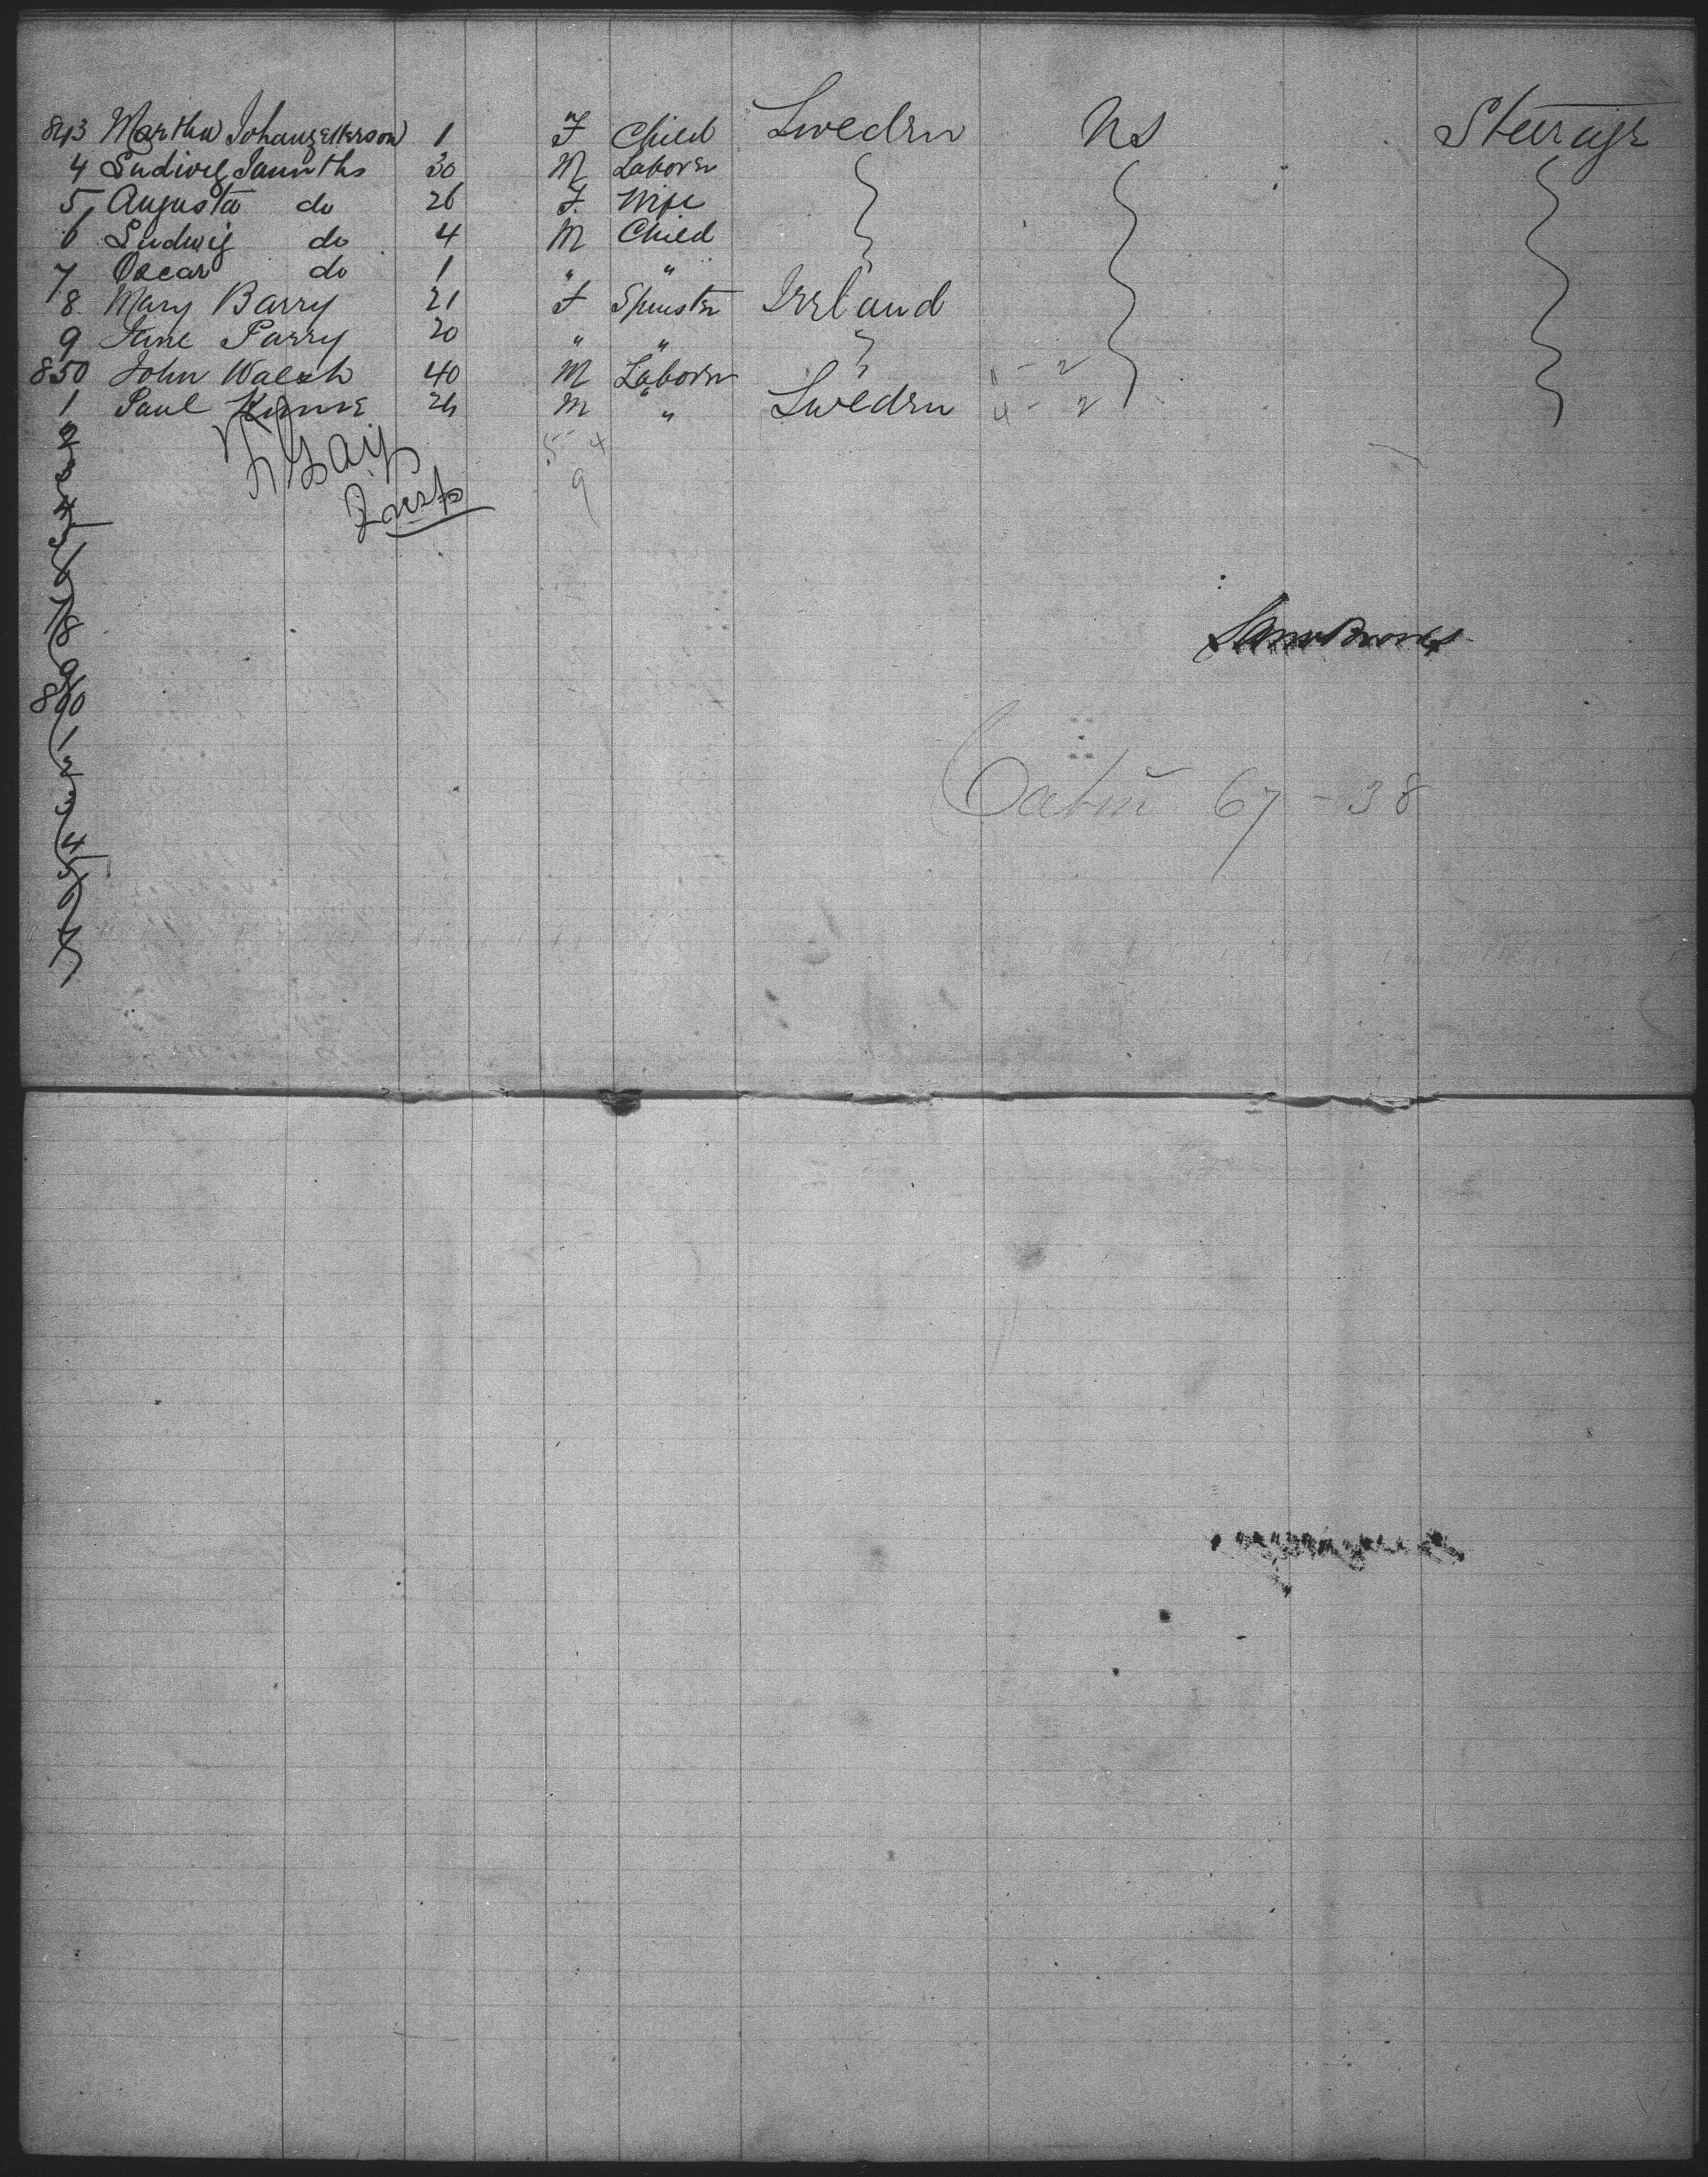 843 Martha Johanspetterson 1 F Child Sweden US Steerage
4 Ludwig 30 M Laborer
5 Augusta do 26 F. Wife
6 Ludwig do 4 M Child
7 Oscar do 1 " "
8 Mary Barry 21 F Spinster Ireland
9 Jane Parry 20 " "
850 John Walsh 40 M Laborer - 2
1 Paul 24 M " Sweden 4 - 2
2 5 4
3 9
4
5
6
7
8
9
860
1
2
3
4
5
6
7
Cabin 67 - 38